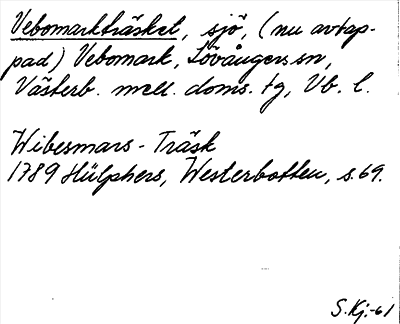 Vebomarkträsket, sjö, (nu avtap-
pad) Vebomark, Lövångers sn,
Västerb. mell. doms. tg, Vb. l.
Wibesmars-Träsk
1789 Hülphers, Westerbotten, s. 69.
S.Kj.-61